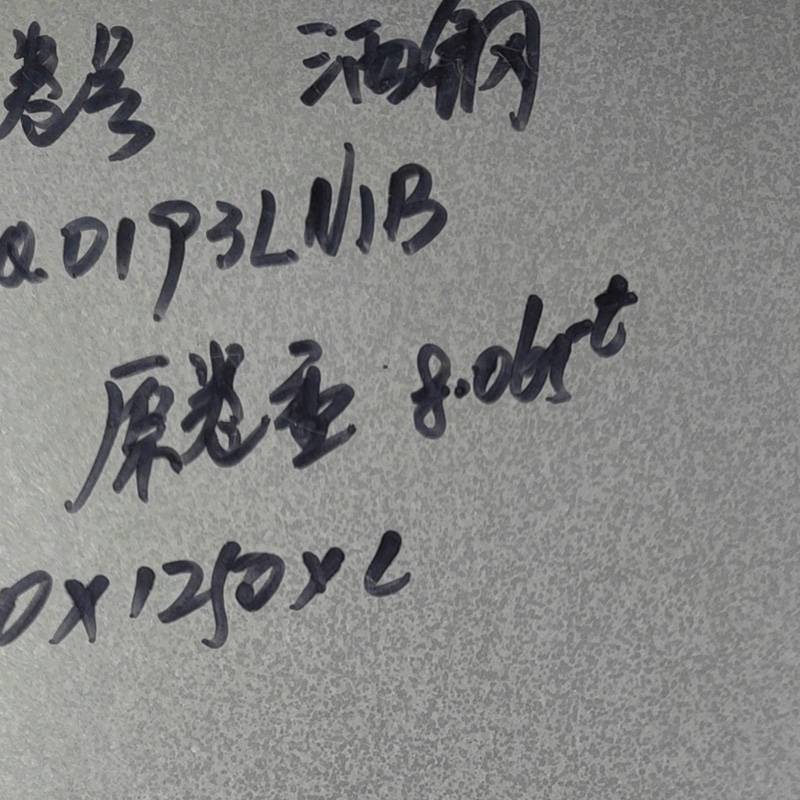 卷号 酒钢
Q.0193LN1B
原卷重 8.065t
0×1250×C